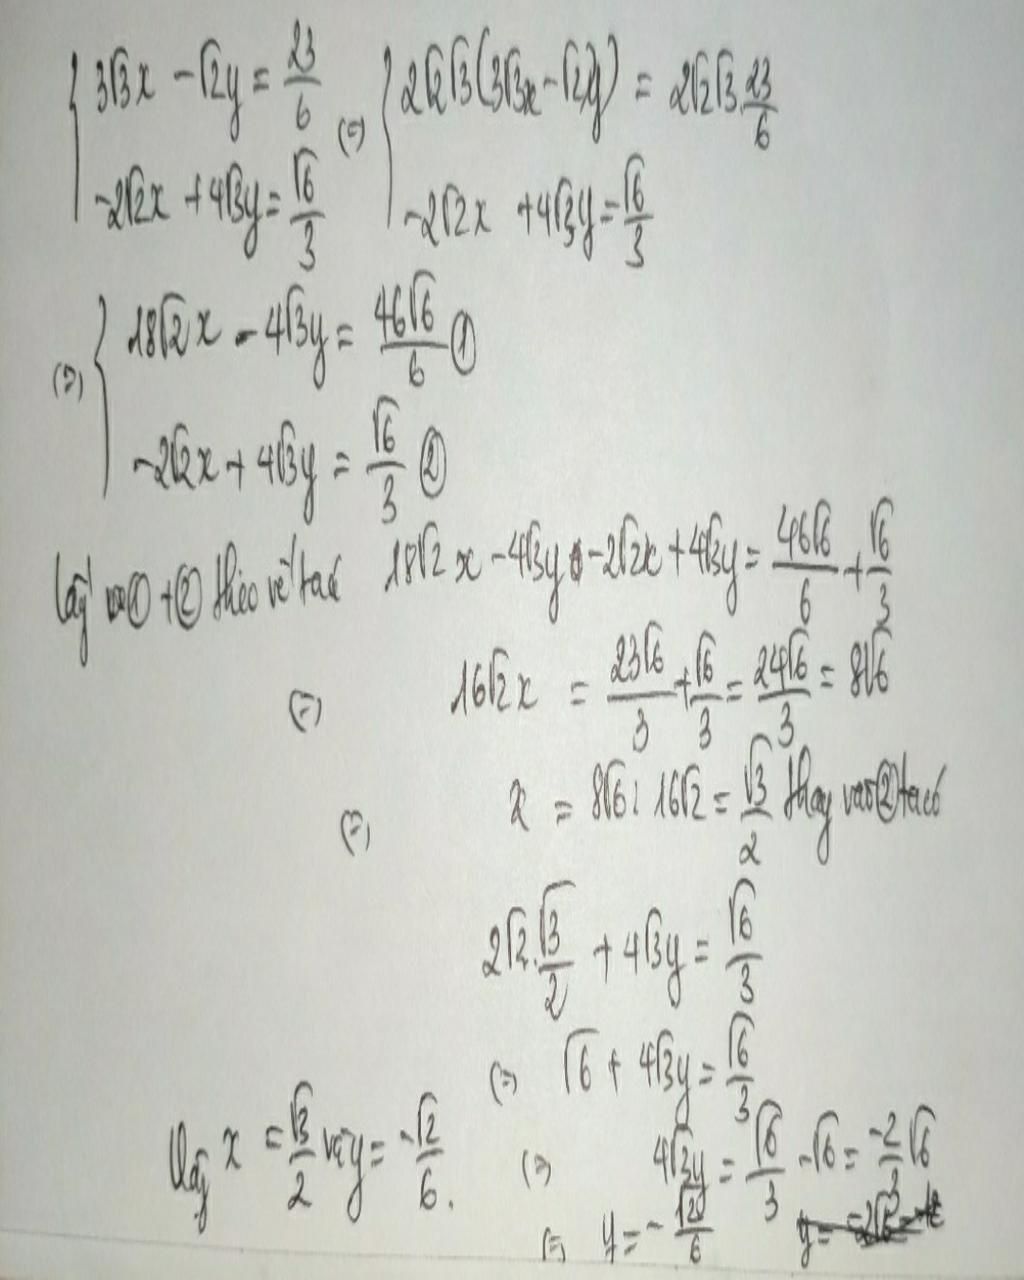 { 3√3x - √2y = 23/6 (=) { 2√2√3(3√3x - √2y) = 2√2√3.23/6
-2√2x + 4√3y = √6/3 -2√2x + 4√3y = √6/3
(=) { 18√2x - 4√3y = 46√6/6 ①
-2√2x + 4√3y = √6/3 ②
lấy ① + ② theo vế ta có 18√2x - 4√3y - 2√2x + 4√3y = 46√6/6 + √6/3
(=) 16√2x = 23√6/3 + √6/3 = 24√6/3 = 8√6
(=) x = 8√6 : 16√2 = √3/2 thay vào ② ta có
2√2.√3/2 + 4√3y = √6/3
(=) √6 + 4√3y = √6/3
Vậy x = √3/2 và y = -√2/6. (=) 4√3y = √6/3 - √6 = -2/3√6
(=) y = -√2/6